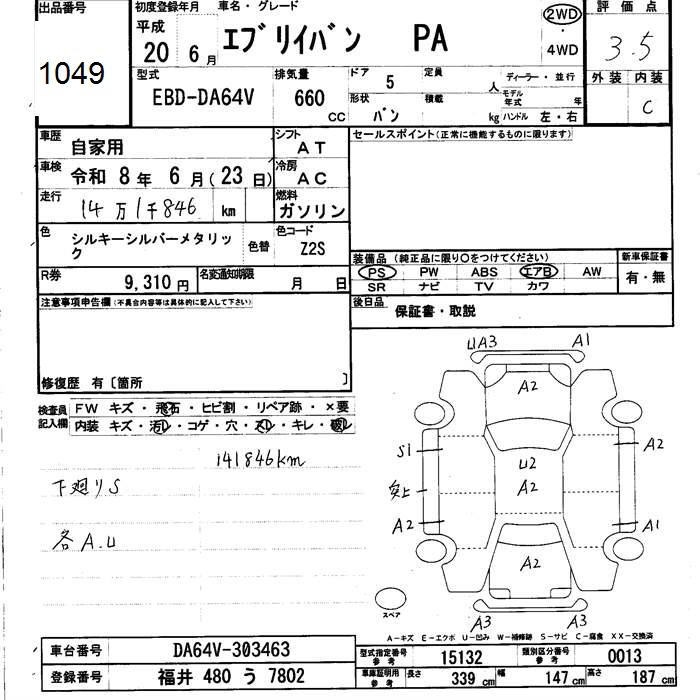 出品番号
1049
初度登録年月
平成
20 6月
車名・グレード
エブリイバン PA
2WD
・
4WD
評価点
3.5
型式
EBD-DA64V
排気量
660 CC
ドア 5
形状 バン
定員 人
積載 kg
ディーラー・並行
モデル年式 年
ハンドル 左・右
外装 内装
C
車歴 自家用
シフト AT
車検 令和 8年 6月(23日)
冷房 AC
走行 14万1千846 km
燃料 ガソリン
色 シルキーシルバーメタリック
色替
色コード Z2S
R券 9,310円
名変通知期限 月 日
セールスポイント(正常に機能するものに限ります)
装備品(純正品に限り○をつけてください)
PS PW ABS エアB AW
SR ナビ TV カワ
新車保証書
有・無
後日品 保証書・取説
注意事項申告欄(不具合内容等は具体的に記入して下さい)
修復歴 有〔箇所 〕
検査員記入欄
FW キズ・飛石・ヒビ割・リペア跡・×要
内装 キズ・汚レ・コゲ・穴・スレ・キレ・破レ
141846km
下廻りS
各A.U
UA3 A1
A2
S1 A2
U2
A2
A2 A1
A2
A3 A3
スペア
A-キズ E-エクボ U-凹み W-補修跡 S-サビ C-腐食 XX-交換済
車台番号 DA64V-303463
登録番号 福井 480 う 7802
型式指定番号 参考 15132
類別区分番号 参考 0013
車庫証明用 参考 長さ 339cm 幅 147cm 高さ 187cm